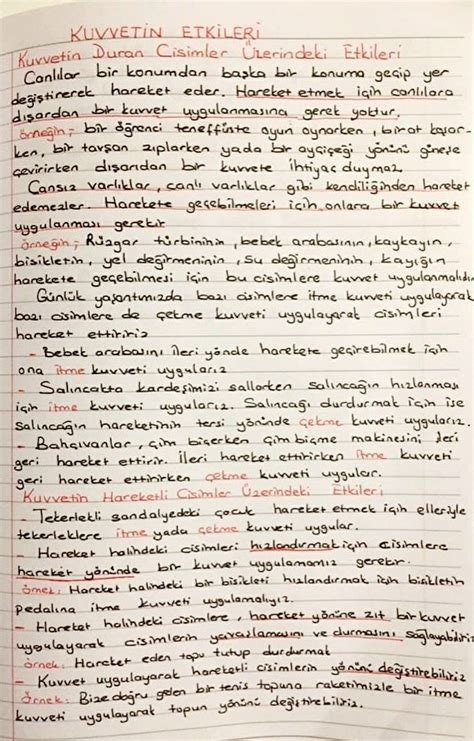 KUVVETİN ETKİLERİ
Kuvvetin Duran Cisimler Üzerindeki Etkileri
Canlılar bir konumdan başka bir konuma geçip yer
değiştirerek hareket eder. Hareket etmek için canlılara
dışardan bir kuvvet uygulanmasına gerek yoktur.
örneğin; bir öğrenci teneffüste oyun oynarken, bir at koşar-
ken, bir tavşan zıplarken yada bir ayçiçeği yönünü güneşe
çevirirken dışarıdan bir kuvvete ihtiyaç duymaz
Cansız varlıklar, canlı varlıklar gibi kendiliğinden hareket
edemezler. Harekete geçebilmeleri için onlara bir kuvvet
uygulanması gerekir
örneğin; Rüzgar türbininin, bebek arabasının, kaykayın,
bisikletin, yel değirmeninin, su değirmeninin, kayığın
harekete geçebilmesi için bu cisimlere kuvvet uygulanmalıdır
Günlük yaşantımızda bazı cisimlere itme kuvveti uygulayarak
bazı cisimlere de çekme kuvveti uygulayarak cisimleri
hareket ettiririz
- Bebek arabasını ileri yönde harekete geçirebilmek için
ona itme kuvveti uygularız
- Salıncakta kardeşimizi sallarken salıncağın hızlanması
için itme kuvveti uygularız. Salıncağı durdurmak için ise
salıncağın hareketinin tersi yönünde çekme kuvveti uygularız.
- Bahçıvanlar, çim biçerken çim biçme makinesini ileri
geri hareket ettirir. İleri hareket ettirirken itme kuvveti
geri hareket ettirirken çekme kuvveti uygular.
Kuvvetin Hareketli Cisimler Üzerindeki Etkileri
- Tekerlekli sandalyedeki çocuk hareket etmek için elleriyle
tekerleklere itme yada çekme kuvveti uygular.
- Hareket halindeki cisimleri hızlandırmak için cisimlere
hareket yönünde bir kuvvet uygulamamız gerekir.
örnek: Hareket halindeki bir bisikleti hızlandırmak için bisikletin
pedalına itme kuvveti uygulamalıyız.
- Hareket halindeki cisimlere, hareket yönüne zıt bir kuvvet
uygulayarak cisimlerin yavaşlamasını ve durmasını sağlayabiliriz
örnek: Hareket eden topu tutup durdurmak
- Kuvvet uygulayarak hareketli cisimlerin yönünü değiştirebiliriz
Örnek: Bize doğru gelen bir tenis topuna raketimizle bir itme
kuvveti uygulayarak topun yönünü değiştirebiliriz.